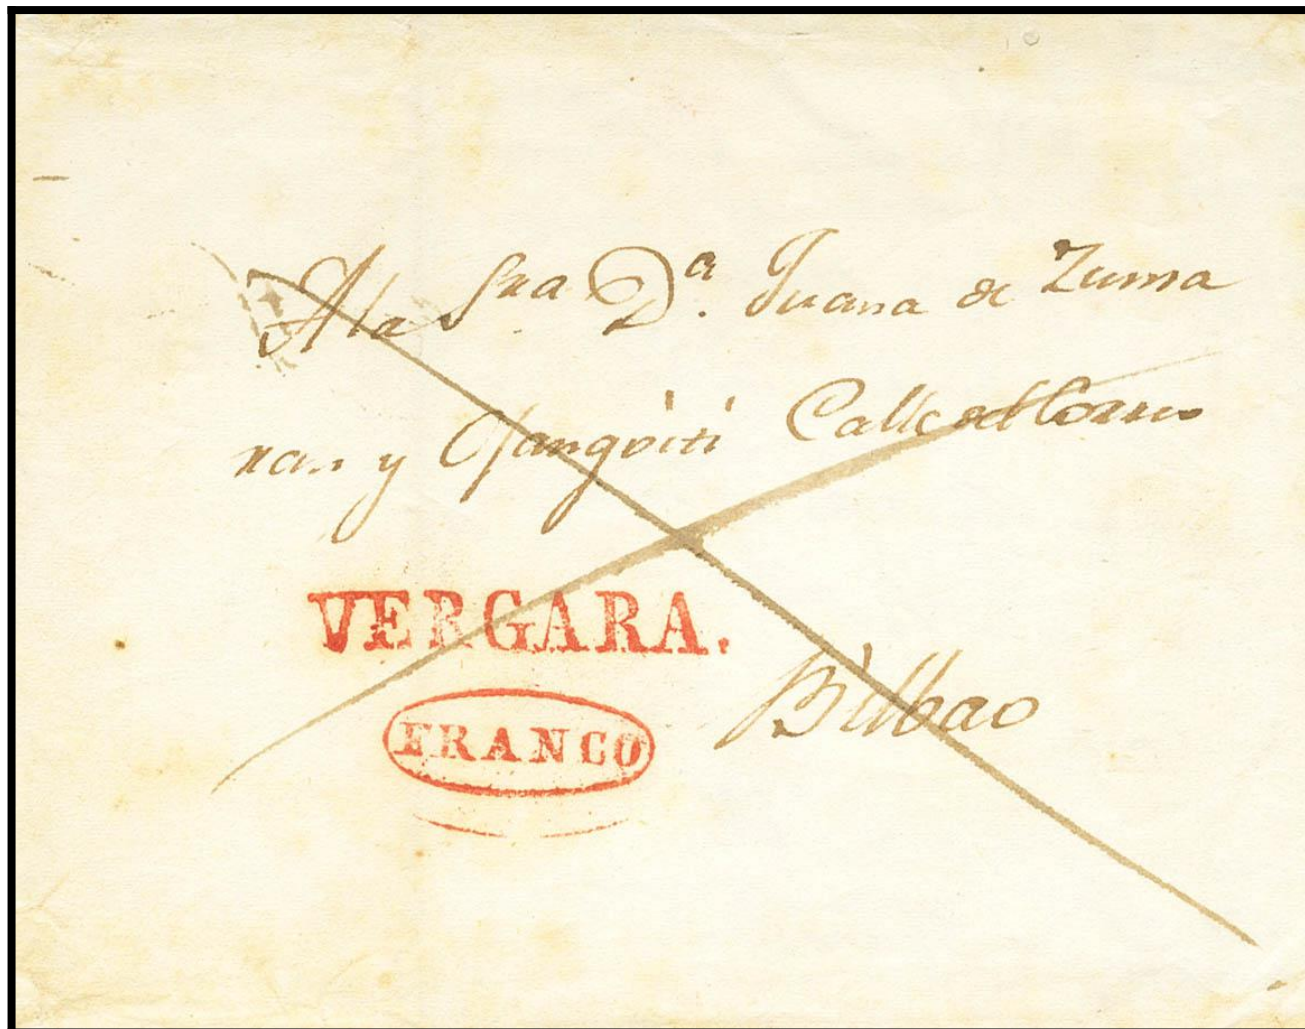 A la Sra. Dª. Juana de Zuma
ran y Ojangoiti Calle del Correo
VERGARA.
FRANCO
Bilbao